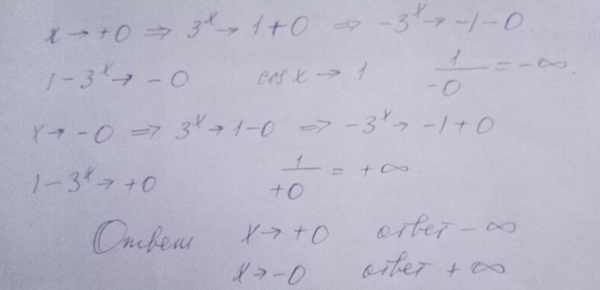 x → +0 ⇒ 3^x → 1+0 ⇒ -3^x → -1-0
1-3^x → -0 cos x → 1 1/-0 = -∞.
x → -0 ⇒ 3^x → 1-0 ⇒ -3^x → -1+0
1-3^x → +0 1/+0 = +∞
Ответ x → +0 ответ -∞
x → -0 ответ +∞